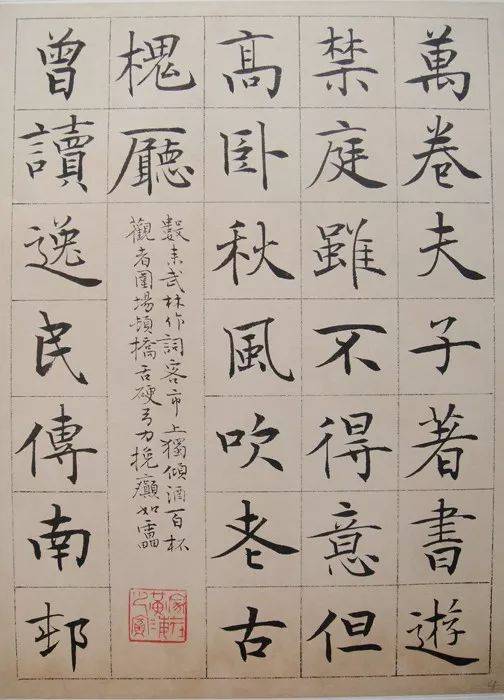 萬卷夫子著書遊
禁庭雖不得意但
高卧秋風吹老古
槐廳
數来武林作詞客市上獨傾酒百杯
觀者圍場頓橋舌硬弓力挽如靁
家在黃浦之濱
曾讀逸民傳南邨